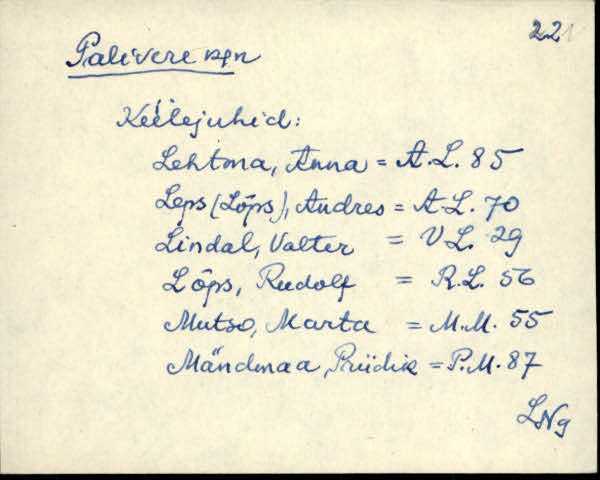 221
Palivere rpn
Keelejuhid:
Lehtma, Anna = A.L. 85
Leps (Lõps), Andres = A.L. 70
Lindal, Valter = V.L. 29
Lõps, Rudolf = R.L. 56
Mutso, Marta = M.M. 55
Mändmaa, Priidik = P.M. 87
LNg